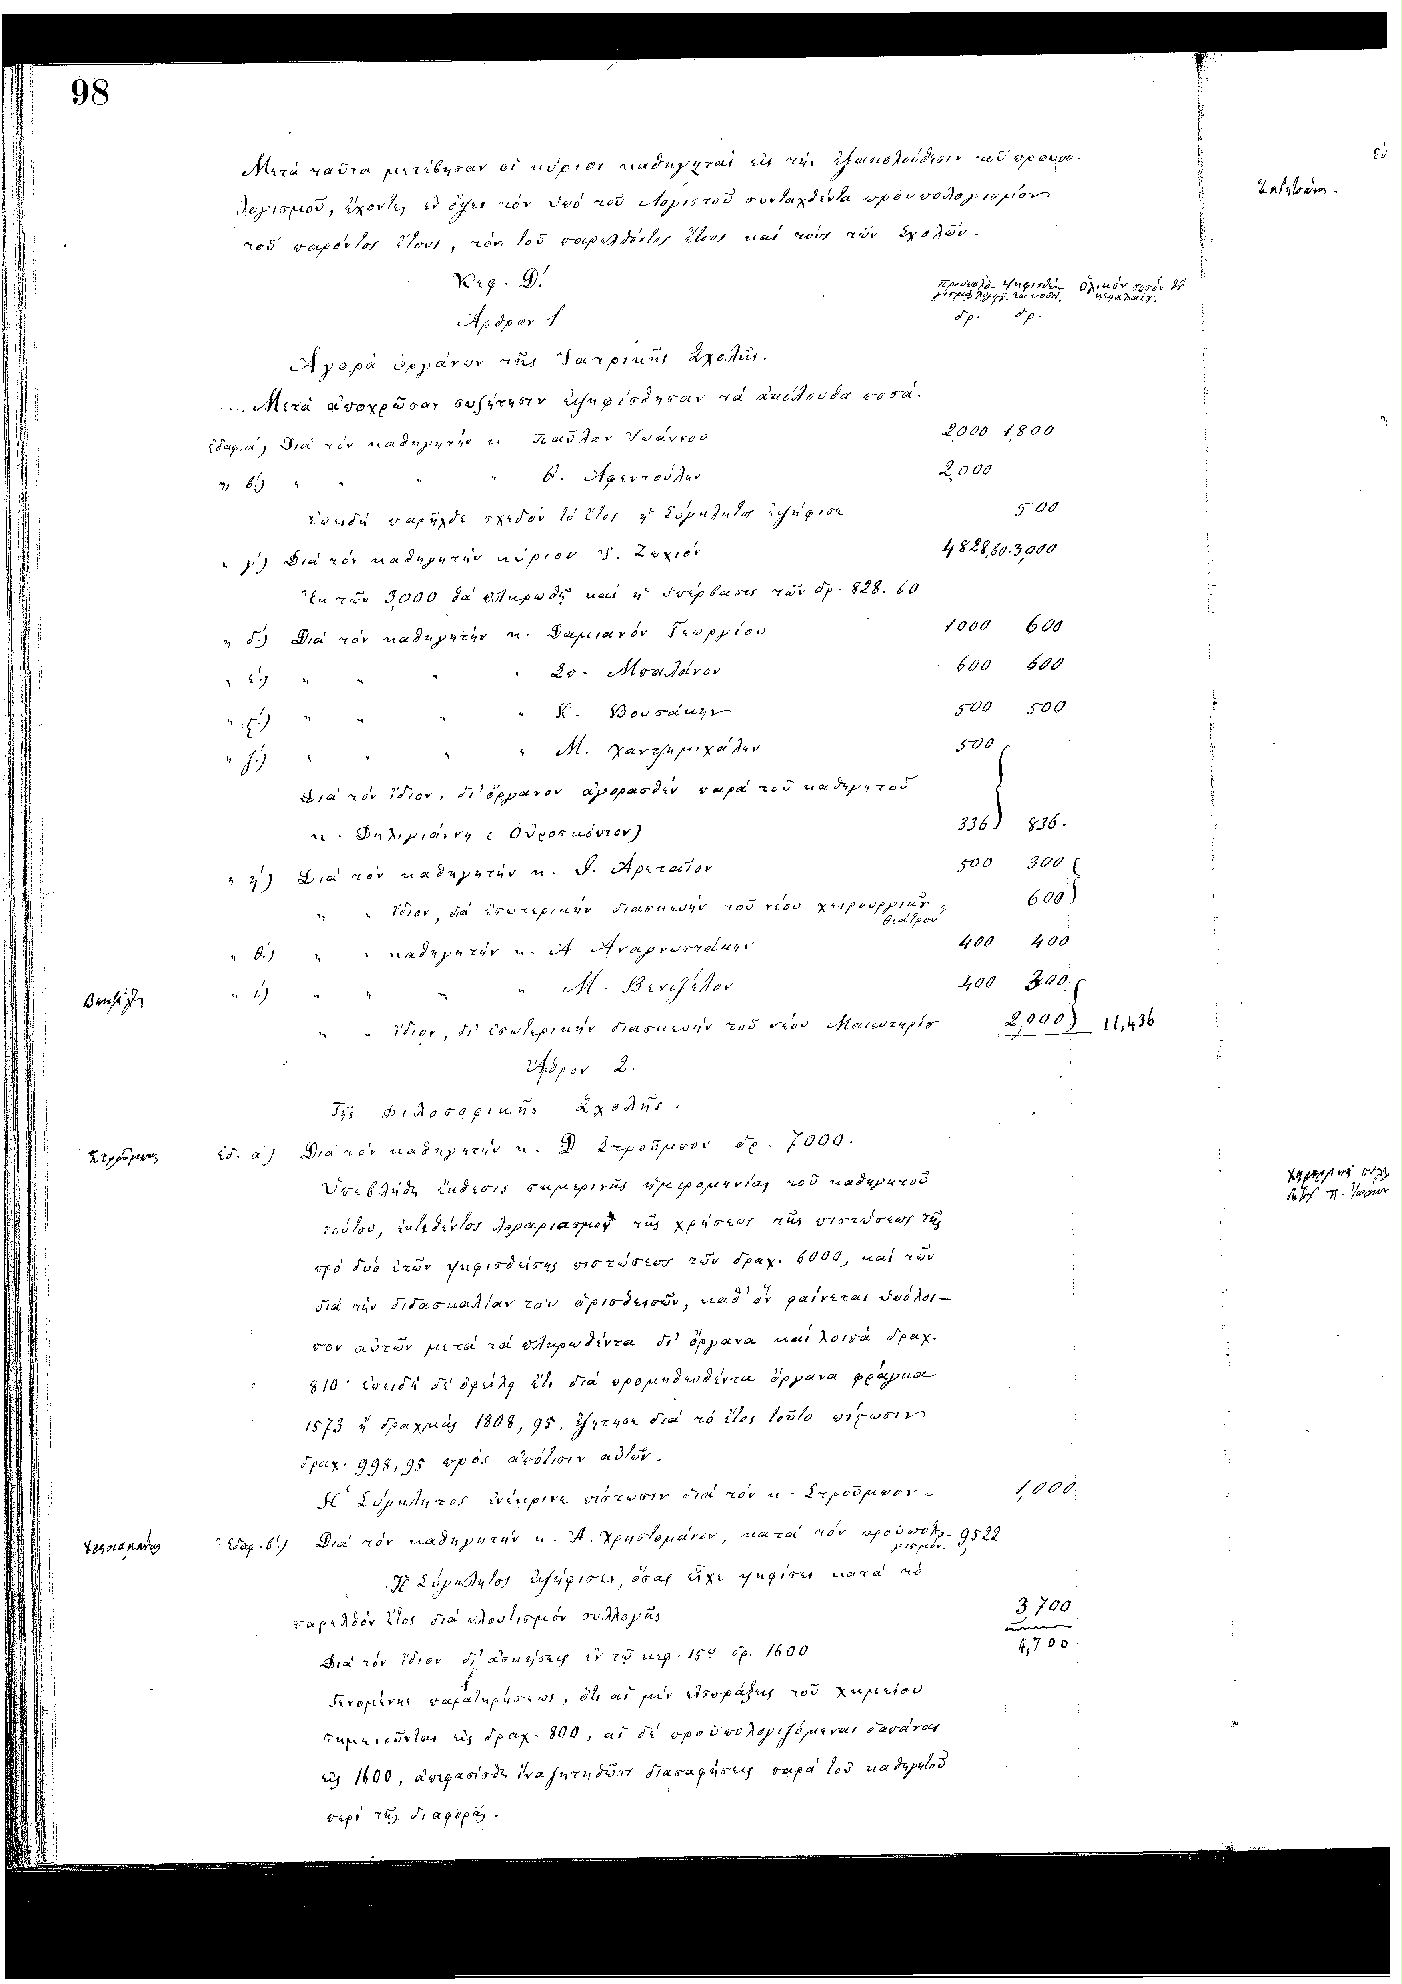 98
Μετὰ ταῦτα μετέβησαν οἱ κύριοι καθηγηταὶ εἰς τὴν ἐξακολούθησιν τοῦ προϋπο-
λογισμοῦ, ἔχοντες ἐν ὄψει τὸν ὑπὸ τοῦ Λογιστοῦ συνταχθέντα προϋπολογισμὸν
τοῦ παρόντος ἔτους, τὸν τοῦ παρελθόντος ἔτους καὶ τοὺς τῶν Σχολῶν.
Κεφ. Δ'.
Ἄρθρον 1
δρ. δρ.
Ἀγορὰ ὀργάνων τῆς Ἰατρικῆς Σχολῆς.
Μετὰ ἀποχρῶσαν συζήτησιν ἐψηφίσθησαν τὰ ἀκόλουθα ποσά.
ἐδάφ. ά) Διὰ τὸν καθηγητὴν κ. Παῦλον Ἰωάννου 2000 1,800
" β') " " " " Θ. Ἀφεντούλην 2,000
Ἐπειδὴ παρῆλθε σχεδὸν τὸ ἔτος ἡ Σύγκλητος ἐψήφισε 500
" γ') Διὰ τὸν καθηγητὴν κύριον Ἰ. Ζωχιὸν 4828,60. 3,000
Ἐκ τῶν 3,000 θὰ πληρωθῇ καὶ ἡ ὑπέρβασις τῶν δρ. 828. 60
" δ') Διὰ τὸν καθηγητὴν κ. Δαμιανὸν Γεωργίου 1000 600
" ε') " " " " Σπ. Μπαλάνον 600 600
" ς') " " " " Κ. Βουσάκην 500 500
" ζ') " " " " Μ. Χαντζημιχάλην 500
Διὰ τὸν ἴδιον, δι' ὄργανον ἀγορασθὲν παρὰ τοῦ καθηγητοῦ
κ. Δηλιγιάννη (Οὐροσκόπιον) 336 836.
" η') Διὰ τὸν καθηγητὴν κ. Θ. Ἀρεταῖον 500 300
" " ἴδιον, διὰ ἐσωτερικὴν διασκευὴν τοῦ νέου χειρουργικοῦ θεάτρου 600
" θ') " " καθηγητὴν κ. Α Ἀναγνωστάκην 400 400
" ί) " " " " Μ. Βενιζέλον 400 300
" " ἴδιον, δι' ἐσωτερικὴν διασκευὴν τοῦ νέου Μαιευτηρίο 2,000 11,436
Ἄρθρον 2.
Τῆς Φιλοσοφικῆς Σχολῆς.
Στροῦμπος
Ἐδ. ά) Διὰ τὸν καθηγητὴν κ. Δ Στροῦμπον δρ. 7000.
Ὑπεβλήθη ἔκθεσις σημερινῆς ἡμερομηνίας τοῦ καθηγητοῦ
τούτου, ἐκτεθέντος λογαριασμοῦ τῆς χρήσεως τῆς πιστώσεως τῆς
πρὸ δύο ἐτῶν ψηφισθείσης πιστώσεως τῶν δραχ. 6000, καὶ τῶν
διὰ τὴν διδασκαλίαν του ὁρισθεισῶν, καθ' ὃν φαίνεται ὑπόλοι-
πον αὐτῶν μετὰ τὰ πληρωθέντα δι' ὄργανα καὶ λοιπὰ δραχ.
810· ἐπειδὴ δὲ ὀφείλῃ ἔτι διὰ προμηθευθέντα ὄργανα φράγκα
1573 ἢ δραχμὰς 1808,95, ἐζήτησε διὰ τὸ ἔτος τοῦτο πίστωσιν
δραχ. 998,95 πρὸς ἀπότισιν αὐτῶν.
Ἡ Σύγκλητος ἐνέκρινε πίστωσιν διὰ τὸν κ. Στροῦμπον 1,000
Χρηστομάνος
Ἐδαφ. β') Διὰ τὸν καθηγητὴν κ. Α. Χρηστομάνον, κατὰ τὸν προϋπολογισμόν. 9522
Ἡ Σύγκλητος ἐψήφισεν, ὅσας εἶχε ψηφίσει κατὰ τὸ
παρελθὸν ἔτος διὰ πλουτισμὸν συλλογῆς 3700
4,700
Διὰ τὸν ἴδιον δι' ἀσκήσεις ἐν τῷ κεφ. 15ῳ δρ. 1600
Γενομένης παρατηρήσεως, ὅτι αἱ μὲν εἰσπράξεις τοῦ χημείου
σημειοῦνται εἰς δραχ. 800, αἱ δὲ προϋπολογιζόμεναι δαπάναι
εἰς 1600, ἀπεφασίσθη ἵνα ζητηθῶσι διασαφήσεις παρὰ τοῦ καθηγητοῦ
περὶ τῆς διαφορᾶς.